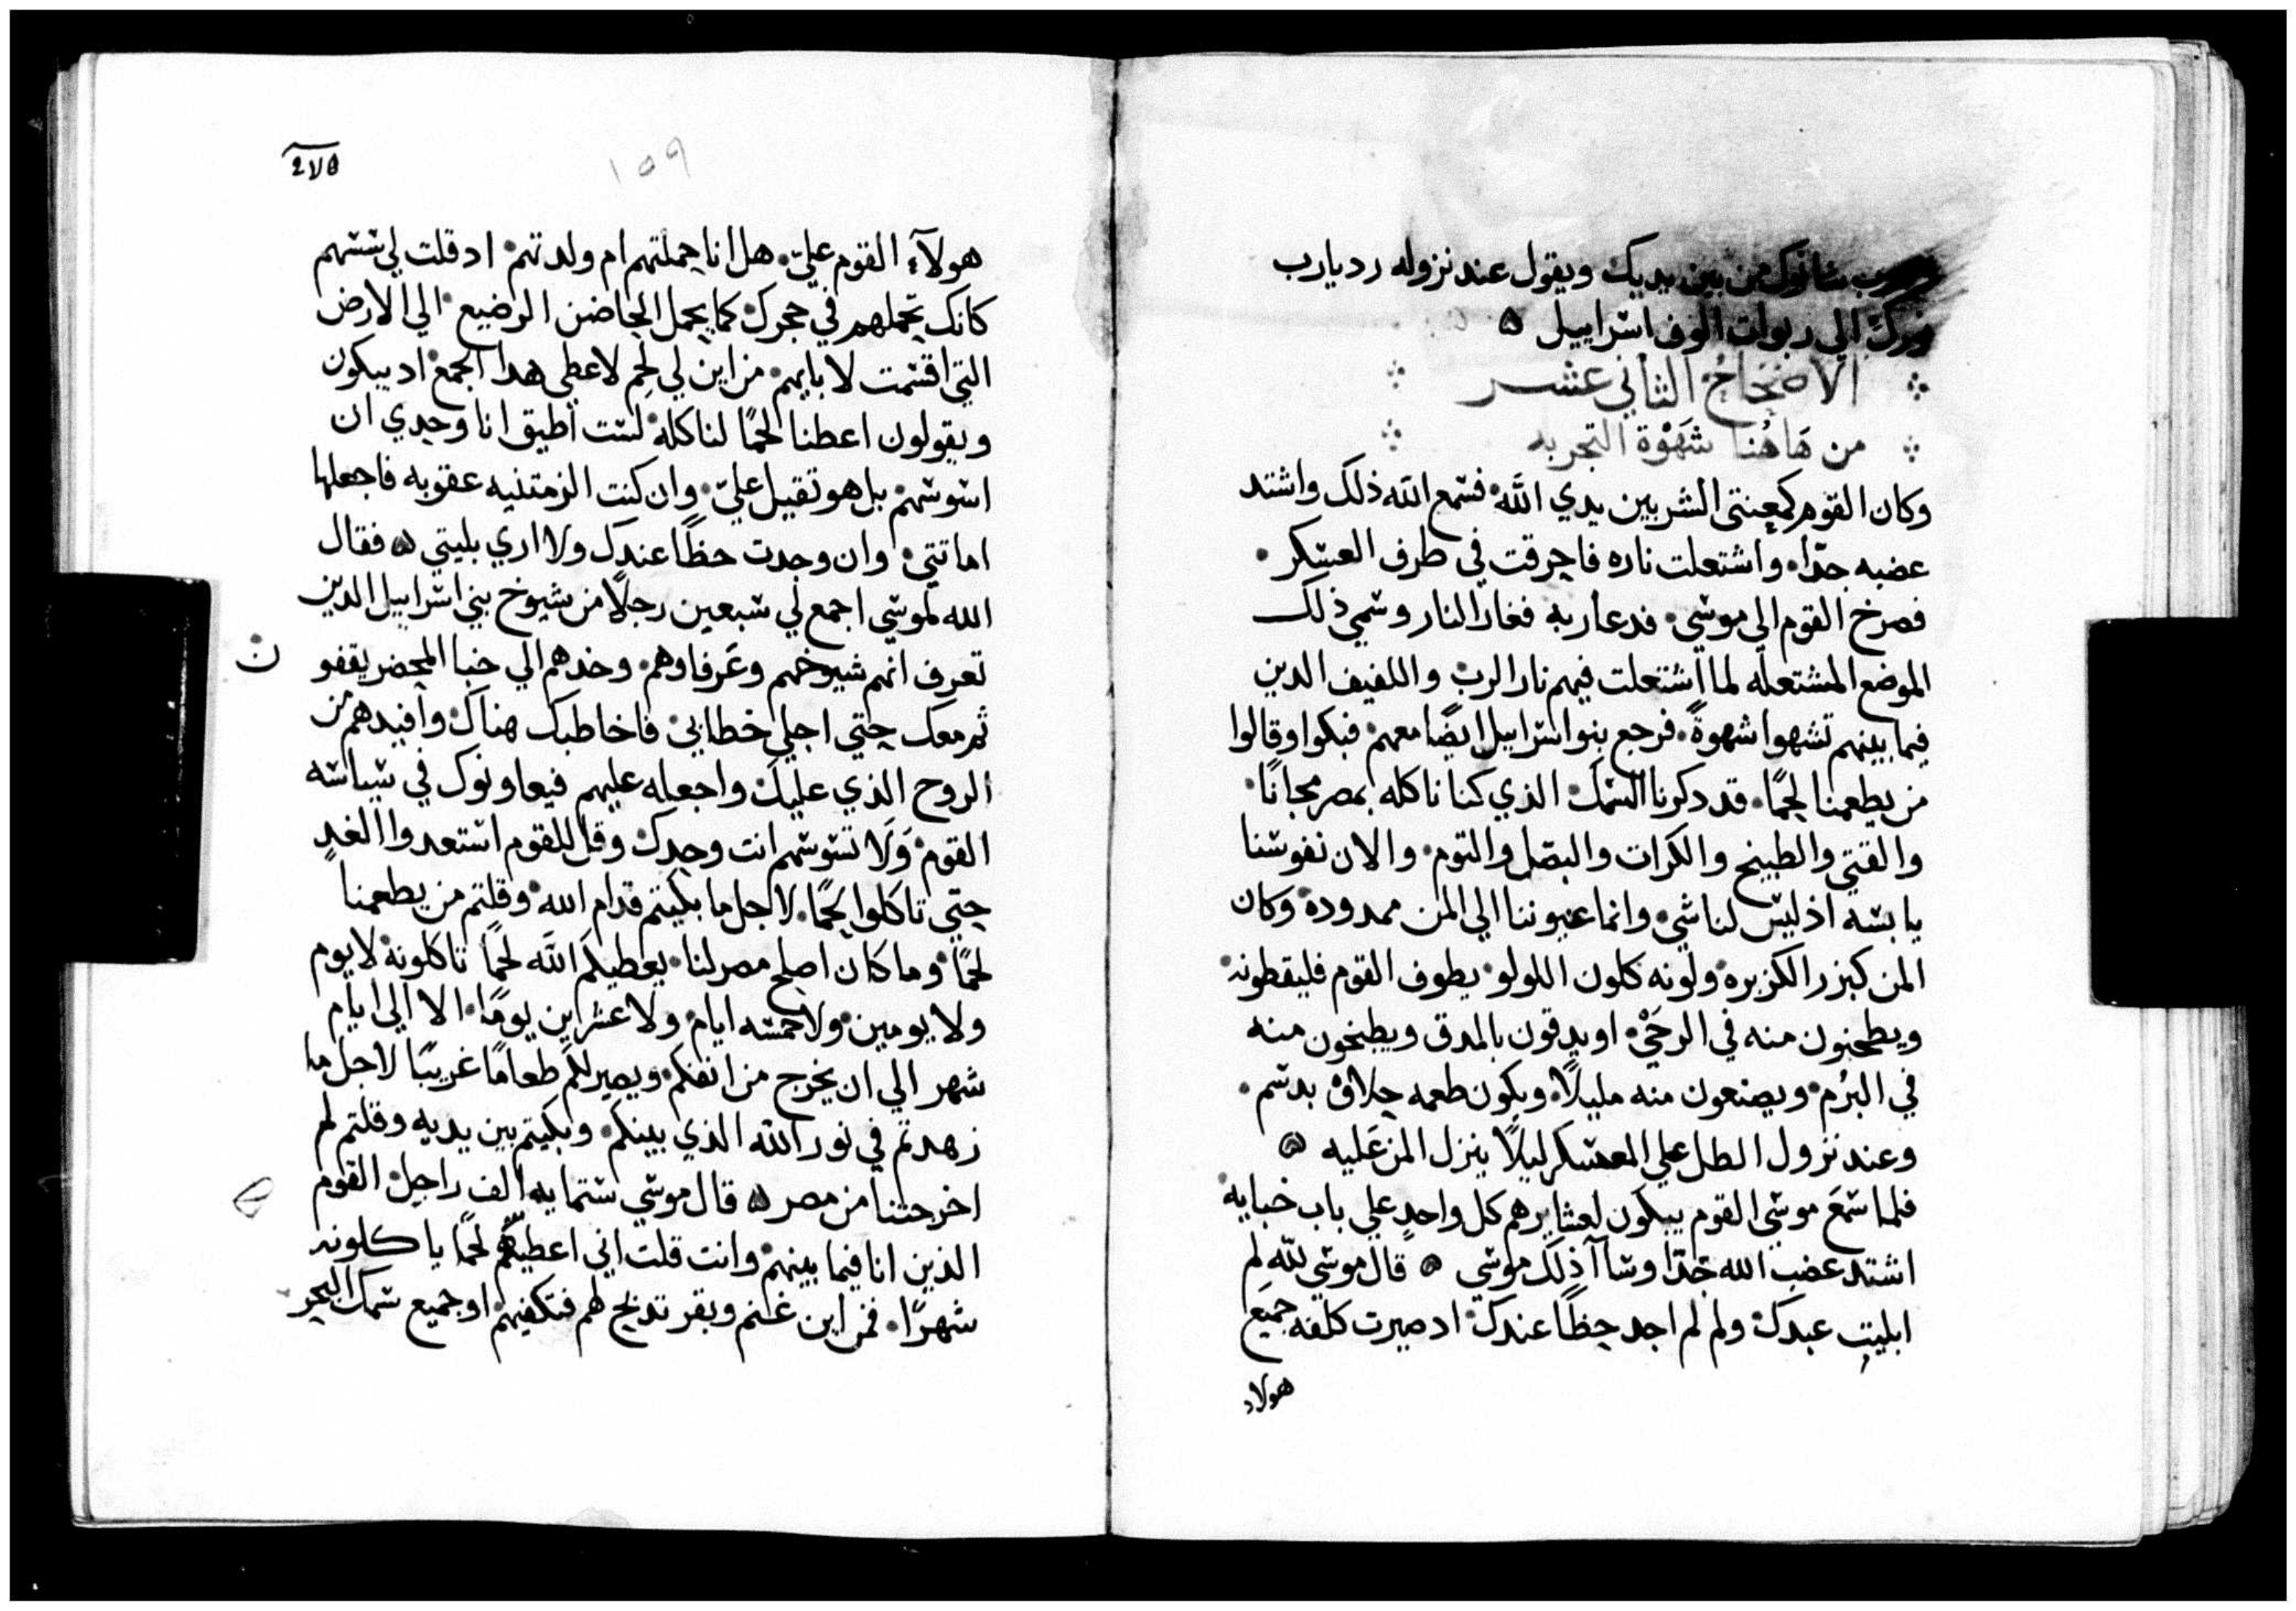 ويهرب شانوك من بين يديك ويقول عند نزوله رد يارب
نورك الي ربوات الوف اسراييل ه
الاصحاح الثاني عشر
من هاهنا شهوة التجربه
وكان القوم كمعنتى الشر بين يدي الله فسمع الله ذلك واشتد
غضبه جدّا واشتعلت ناره فاحرقت في طرف العسكر
فصرخ القوم الي موسي فدعا ربه فغار النار وسمي ذلك
الموضع المشتعله لما اشتعلت فيهم نار الرب واللفيف الدين
فيما بينهم تشهوا شهوةً فرجع بنوا اسراييل ايضًا معهم فبكوا وقالوا
من يطعمنا لحمًا قد دكرنا السمك الذي كنا ناكله بمصر مجانًا
والقتي والطبيخ والكرات والبصل والتوم والان نفوسنا
يابسه اذ ليس لنا شي وانما عيوننا الي المن ممدودة وكان
المن كبزر الكزبره ولونه كلون اللولو يطوف القوم فليقطونه
ويطحنون منه في الرحَيْ او يدقون بالمدق ويطبخون منه
في البرُم ويصنعون منه مليلاً ويكون طعمه حلاوْ بدسم
وعند نزول الطل علي المعسكر ليلاً ينزل المن عَليه ه
فلما سمَع موسي القوم يبكون لعشايرهم كل واحدٍ علي باب خبايه
اشتد غضب الله جدّا وسآا ذلك موسي ه قال موسي للّه لِم
ابليت عبدك ولم لم اجد حظاً عندك اد صيرت كلفه جميَع
هولاء
275
١٥٩
هولآء القوم عليّ هل انا حملتهم ام ولدتهم اد قلت لي سسهم
كانك تحملهم في حجرك كما يحمل الحاضن الرضيع الي الارض
التي اقسمت لابايهم من اين لي لحم لاعطي هدا الجمع اد يبكون
ويقولون اعطنا لحمًا لناكله لست اطيق انا وحدي ان
اسوسهم بل هو تقيل عليّ وان كنت الزمتنيه عقوبه فاجعلها
اماتتي وان وجدت حظاً عندك ولا اري بليتي ه فقال
الله لموسي اجمع لي سبعين رجلاً من شيوخ بني اسراييل الدين
تعرف انهم شيوخهم وعَرفاوهم وخدهم الي خبا المحضر يقفو
ن
ثم معك حتي اجلي خطابي فاخاطبك هناك وافيدهم من
الروح الذي عليك واجعله عليهم فيعاونوك في سياسه
القوم وَلَا تسوسهم انت وحدك وقل للقوم استعدوا الغدٍ
حتي تاكلوا لحمًا لاجل ما بكيتم قدام الله وقلتم من يطعمنا
لحمًا وما كان اصلح مصر لنا يعطيكم الله لحمًا تاكلونه لا يوم
ولا يومين ولا خمسه ايام ولا عشراين يومًا الا الي ايام
شهر الي ان يخرج من انفكم ويصير لكم طعامًا غريبًا لاجل ما
زهدتم في نور الله الذي بينكم وبكيتم بين يديه وقلتم لم
اخرجتنا من مصر ه قال موسي ستمايه الف راجل القوم
الذين انا فيما بينهم وانت قلت اني اعطيهم لحمًا ياكلونه
شهرًا فمن اين غنم وبقر تدبح لهم فتكفيهم او جميع سمك البحر